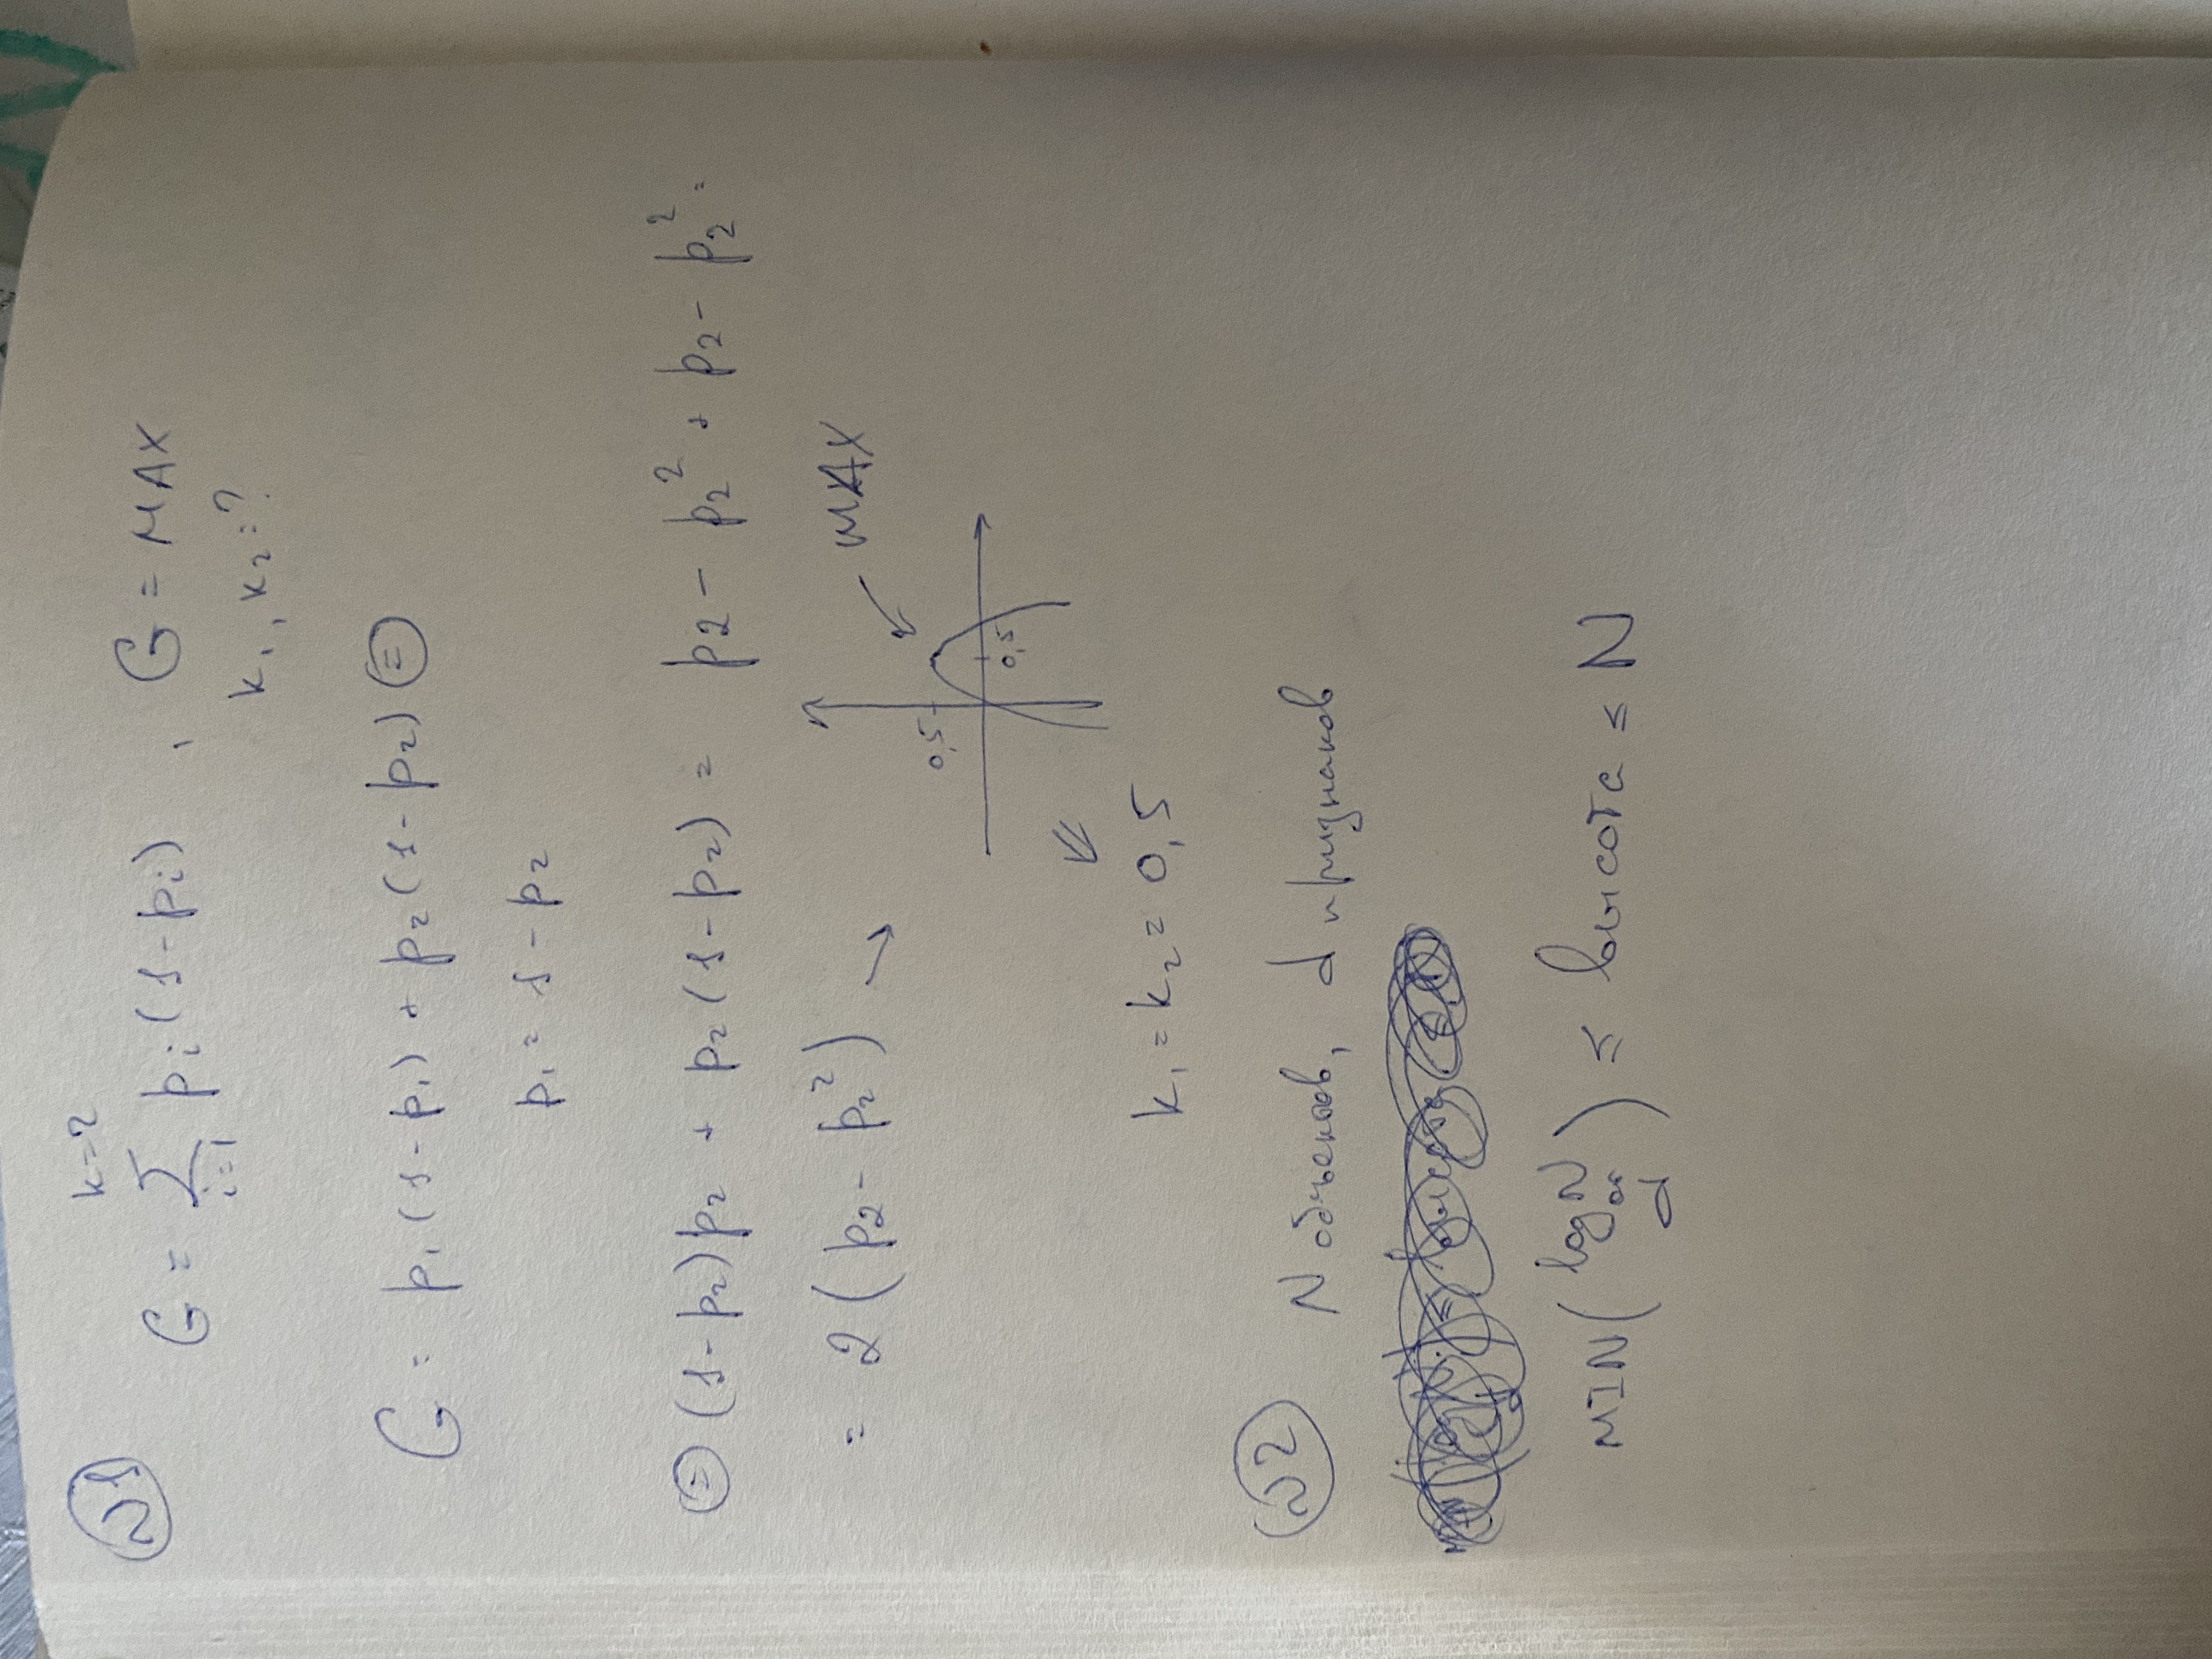 №1
k=2
G = Σ pi(1-pi) , G = MAX
i=1
k₁, k₂ = ?
G = p₁(1-p₁) + p₂(1-p₂) =
p₁ = 1 - p₂
= (1-p₂)p₂ + p₂(1-p₂) = p₂ - p₂² + p₂ - p₂² =
= 2(p₂ - p₂²) → MAX
0,5
0,5
k₁ = k₂ = 0,5
№2 N объектов, d признаков
MIN(log N or d) ≤ высота ≤ N